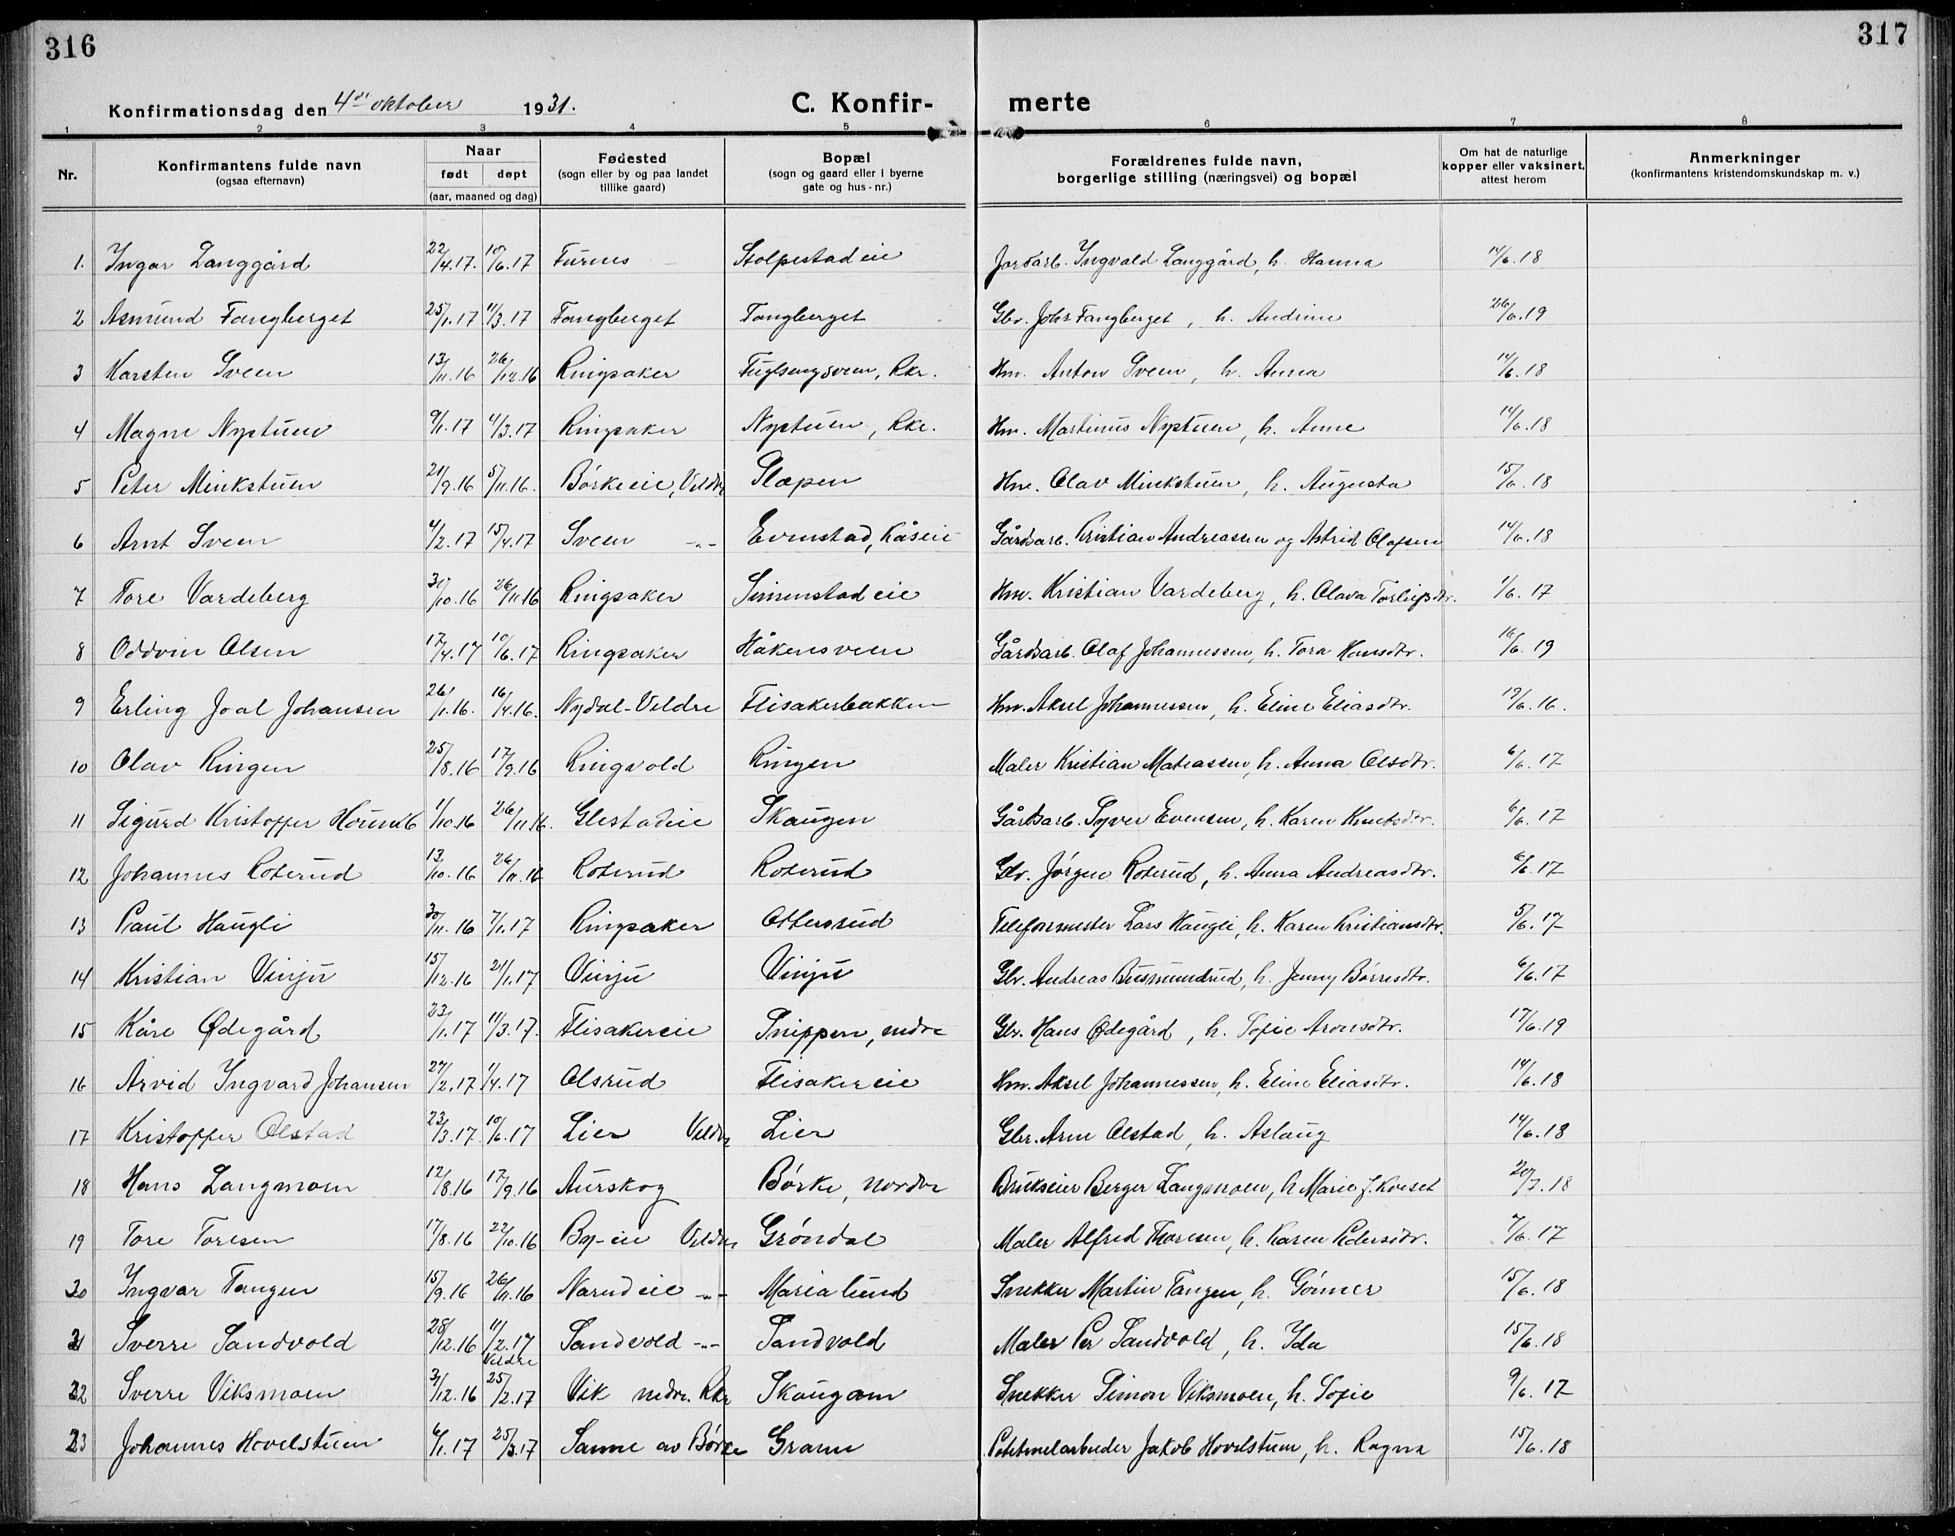 316
317
Konfirmationsdag den 4de oktober 1931.
C. Konfir- merte
1 2 3 4 5 6 7 8
Nr. | Konfirmantens fulde navn (ogsaa efternavn) | Naar født døpt (aar, maaned og dag) | Fødested (sogn eller by og paa landet tillike gaard) | Bopæl (sogn og gaard eller i byerne gate og hus-nr.) | Forældrenes fulde navn, borgerlige stilling (næringsvei) og bopæl | Om hat de naturlige kopper eller vaksinert, attest herom | Anmerkninger (konfirmantens kristendomskundskap m. v.)
1. Ingar Langgård 22/4.17. 10/6.17 Furnes Stolpestadeie Jordarb. Ingvald Langgård, h. Hanna 14/6.18
2 Asmund Fangberget 25/1.17 4/3.17 Fangberget Fangberget Gbr. Johs Fangberget, h. Andrine 26/6.19
3 Karsten Sveen 13/11.16 26/12.16 Ringsaker Fuglsengsveen, Rkr. Hm. Anton Sveen, h. Anna 14/6.18
4 Magne Nystuen 9/1.17 4/3.17 Ringsaker Nystuen, Rkr. Hm. Martinus Nystuen, h. Anne 14/6.18
5 Peter Minkstuen 21/9.16 5/11.16. Børkeeie, Veldre Slapen Hm. Olav Minkstuen, h. Augusta 15/6.18
6 Arnt Sveen 4/2.17 15/4.17 Sveen -"- Evenstad, Kåseie Gårdsarb. Kristian Andreassen og Astrid Olafsen 14/6.18
7 Tore Vardeberg 31/10.16 26/11.16 Ringsaker Simenstadeie Hm. Kristian Vardeberg, h. Olava Torleifsdtr. 1/6.17
8 Oddvin Olsen 17/4.17 10/6.17 Ringsaker Håkensveen Gårdsarb. Olaf Johannessen, h. Tora Hansdtr. 16/6.19
9 Erling Joal Johansen 26/1.16. 16/4.16. Nydal-Veldre Flisakerbakken Hm. Aksel Johannessen, h. Eline Eliasdtr. 19/6.16.
10 Olav Ringen 25/8.16 17/9.16 Ringvold Ringen Maler Kristian Mateassen, h. Anna Olsdtr. 6/6.17
11 Sigurd Kristoffer 1/10.16 26/11.16. Glestadeie Skaugen Gårdsarb. Syver Evensen, h. Karen Knutsdtr. 6/6.17
12 Johannes Roterud 13/10.16 26/11.16 Roterud Roterud Gbr. Jørgen Roterud, h. Anna Andreasdtr. 6/6.17
13 Paul Haugli 30/11.16 7/1.17 Ringsaker Ottersrud Telefonmester Lars Haugli, h. Karen Kristiansdtr. 5/6.17
14 Kristian Vinju 15/12.16 21/1.17 Vinju Vinju Gbr. Andreas Busmundrud, h. Jenny Børresdtr. 6/6.17
15 Kåre Ødegård 23/1.17 11/3.17. Flisakereie Snippen, nedre Gbr. Hans Ødegård, h. Sofie Aronsdtr. 17/6.19
16 Arvid Ingvard Johansen 27/2.17 1/4.17 Olsrud Flisakereie Hm. Aksel Johannessen, h. Eline Eliasdtr. 14/6.18
17 Kristoffer Olstad 23/3.17. 10/6.17 Lier Veldre Lier Gbr. Arne Olstad, h. Aslaug 14/6.18
18 Hans Langmoen 12/8.16 17/9.16 Aurskog Børke, nordre Brukseier Berger Langmoen, h Marie J. Kveset 20/7.18
19 Tore Toresen 17/8.16 22/10.16 By-eie Veldre Grøndal Maler Alfred Thoresen, h. Karen Pedersdtr. 7/6.17
20 Ingvar Tangen 15/9.16 26/11.16 Narudeie -"- Marialund Snekker Martin Tangen, h. Gønner 15/6.18
21 Sverre Sandvold 28/12.16 11/2.17 Sandvold -"- Sandvold Maler Per Sandvold, h. Ida 15/6.18
22 Sverre Viksmoen 31/12.16 Veldre 25/2.17 Vik nedre. Rkr Skaugom Snekker Simon Viksmoen, h. Sofie 9/6.17
23 Johannes Hovelstuen 6/1.17 25/3.17 Sanne av Børke Granm Potetmelarbeider Jakob Hovelstuen, h. Ragna 15/6.18